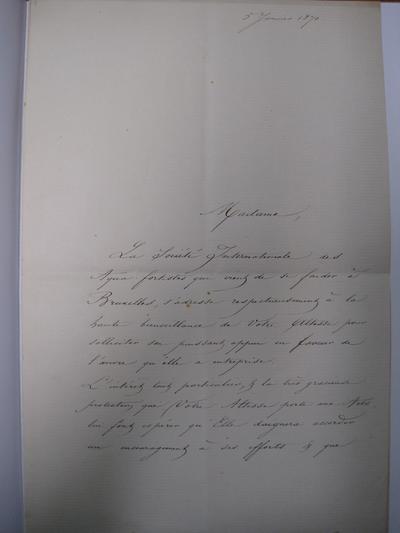 5 Janvier 1870
Madame,
La Société Internationale des
Aqua-fortistes qui vient de se fonder à
Bruxelles, s'adresse respectueusement à la
haute bienveillance de Votre Altesse pour
solliciter son puissant appui en faveur de
l'œuvre qu'elle a entreprise.
L'intérêt tout particulier, & la très gracieuse
protection, que Votre Altesse porte aux Arts
lui font espérer qu'Elle daignera accorder
un encouragement à ses efforts & que